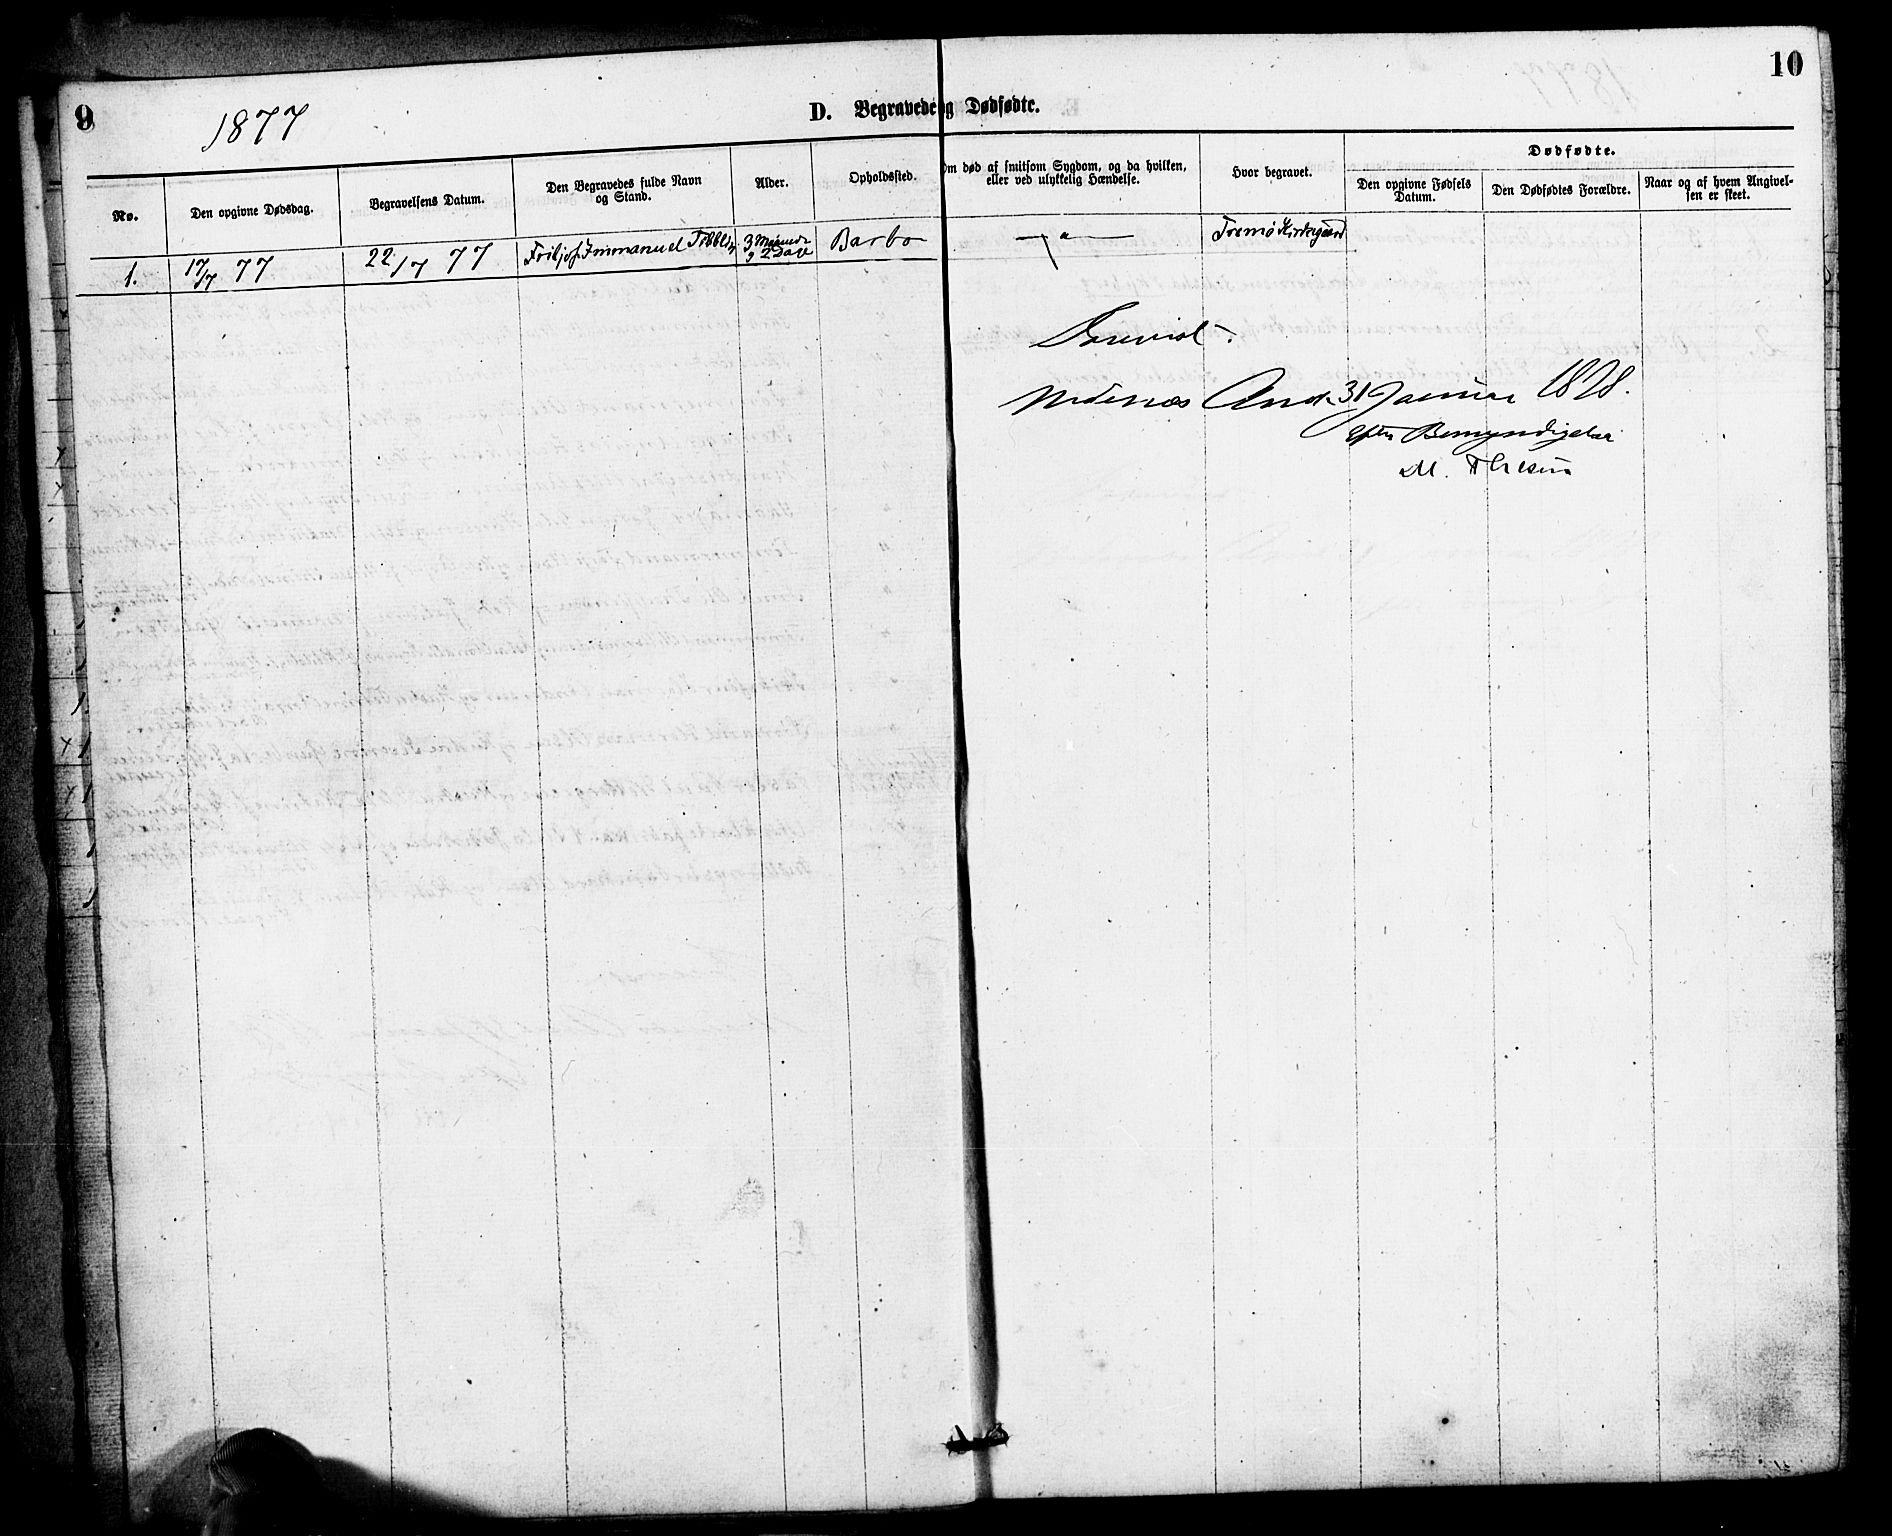 9
10
1877
D. Begravede og Dødfødte.
No.
Den opgivne Dødsdag.
Begravelsens Datum.
Den Begravedes fulde Navn
og Stand.
Alder.
Opholdssted.
Om død af smitsom Sygdom, og da hvilken,
eller ved ulykkelig Hændelse.
Hvor begravet.
Dødfødte.
Den opgivne Fødsels
Datum.
Den Dødfødtes Forældre.
Naar og af hvem Angivel-
sen er skeet.
1.
17/7 77
22/7 77
Fritjof Immanuel
3 Maaneder
2 Dage
Barbo
Tromø Kirkegaard
Forevist.
Nedenæs 31 Januar 1878.
efter Bemyndigelse
M.